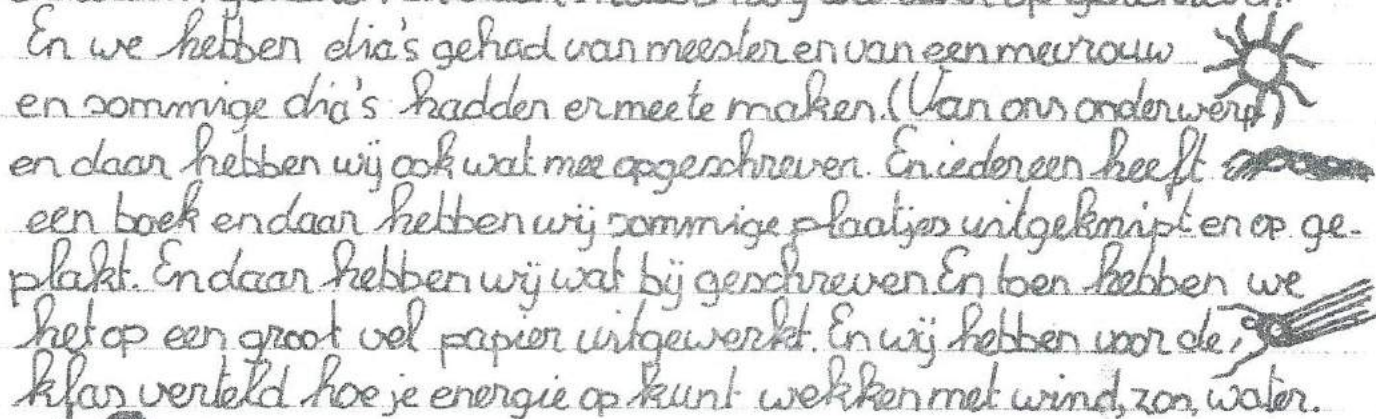 En we hebben dia's gehad van meester en van een mevrouw
en sommige dia's hadden ermee te maken. (Van ons onderwerp)
en daar hebben wij ook wat mee opgeschreven. En iedereen heeft
een boek en daar hebben wij sommige plaatjes uitgeknipt en op ge-
plakt. En daar hebben wij wat bij geschreven En toen hebben we
het op een groot vel papier uitgewerkt. En wij hebben voor de
klas verteld hoe je energie op kunt wekken met wind, zon, water.